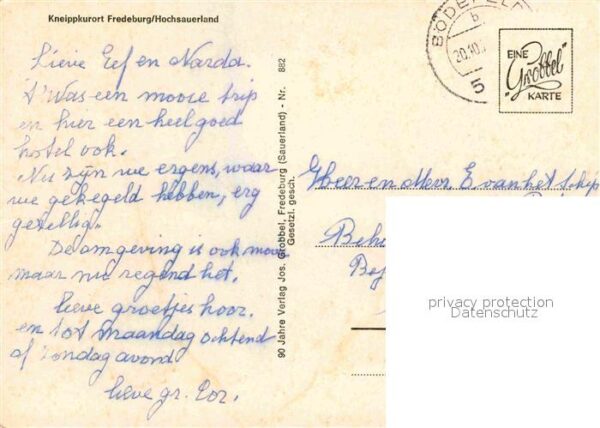 Kneippkurort Fredeburg/Hochsauerland
Lieve Eef en Narda.
't Was een mooie trip
en hier een heel goed
hotel ook.
Nu zijn we ergens, waar
we gekegeld hebben, erg
gezellig.
De omgeving is ook mooi
maar nu regend het.
lieve groetjes hoor.
en tot maandag ochtend
of zondag avond
lieve gr. Cor.
90 Jahre Verlag Jos. Grobbel, Fredeburg (Sauerland) - Nr. 882
Gesetzl. gesch.
BÖDEFELD
b
20.10.
5
EINE
"Grobbel"
KARTE
Heer en Mevr. E. van het Schip
privacy protection
Datenschutz